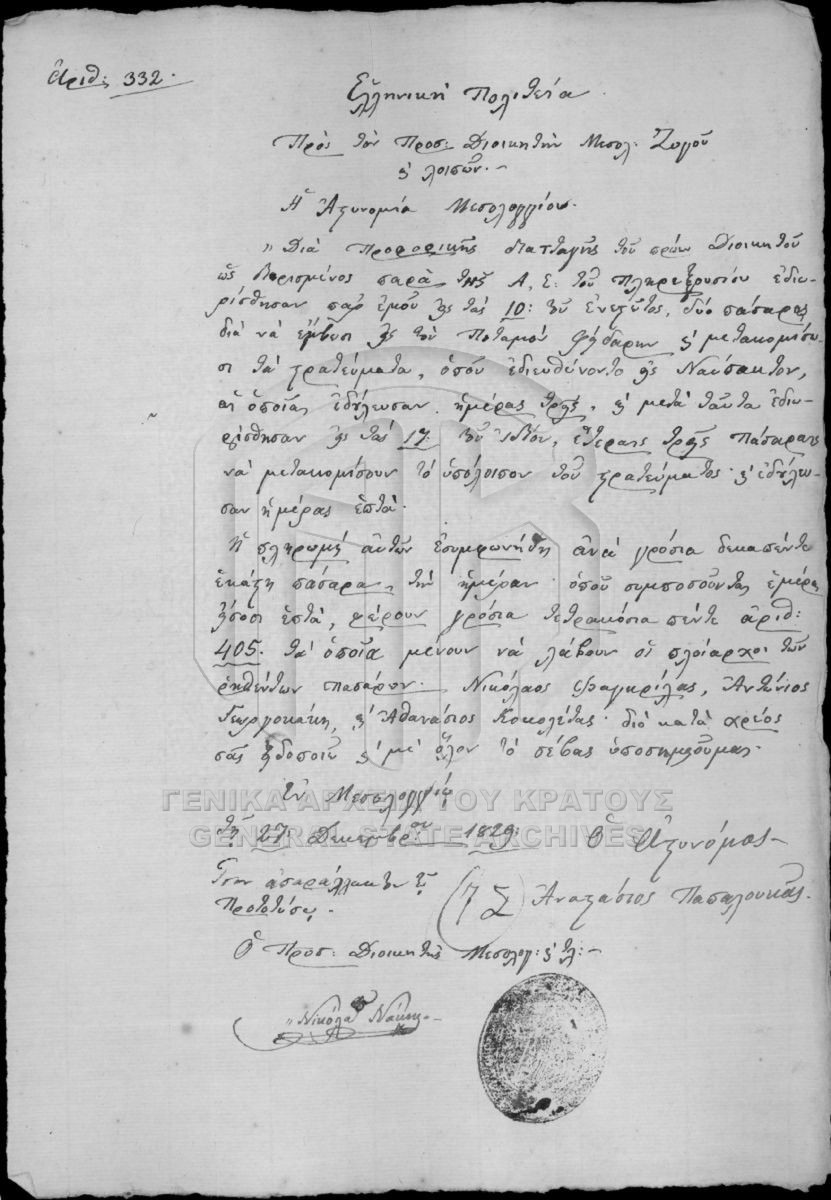 Ἀριθ: 332.
Ἑλληνική Πολιτεία
Πρὸς τὸν Προσ: Διοικητὴν Μεσολ. Ζυγοῦ
καὶ λοιπῶν.
Ἡ Ἀστυνομία Μεσολογγίου.
„Διὰ Προφορικῆς διαταγῆς τοῦ πρώην Διοικητοῦ
ὡς διορισμένος παρὰ τῆς Α. Ε. τοῦ Πληρεξουσίου ἐδιω-
ρίσθησαν παρ' ἐμοῦ εἰς τὰς 10: τοῦ ἐνεστῶτος, δύο πάσαραις
διὰ νὰ ἔμβωσι εἰς τὸν Ποταμὸν Φείδαρην καὶ μετακομίσω-
σι τὰ στρατεύματα, ὁποῦ ἐδιευθύνοντο εἰς Ναύπακτον,
αἱ ὁποῖαι ἐδούλευσαν ἡμέρας τρεῖς, καὶ μετὰ ταῦτα ἐδιω-
ρίσθησαν εἰς τὰς 17: τοῦ ἰδίου, ἕτεραις τρεῖς Πάσαραις
νὰ μετακομίσουν τὸ ὑπόλοιπον τοῦ στρατεύματος· καὶ ἐδούλευ-
σαν ἡμέρας ἑπτά.
Ἡ πληρωμὴ αὐτῶν ἐσυμφωνήθη ἀνὰ γρόσια δεκαπέντε
ἑκάστη πάσαρα, τὴν ἡμέραν· ὁποῦ συμποσοῦνται ἡμέραι
εἴκοσι ἑπτά, φέρουν γρόσια τετρακόσια πέντε ἀριθ:
405. τὰ ὁποῖα μένουν νὰ λάβουν οἱ πλοίαρχοι τῶν
ῥηθέντων πασάρων. Νικόλαος Φαγκρίλας, Ἀντώνιος
Γεωργοκάκη, καὶ Ἀθανάσιος Κοκολέτας· διὸ κατὰ χρέος
σᾶς εἰδοποιῶ καὶ μὲ ὅλον τὸ σέβας ὑποσημειοῦμαι.
Ἐν Μεσολογγίῳ
τῇ 27: Δεκεμβρίου 1829:
Ὁ Ἀστυνόμος
Ἴσον ἀπαράλλακτον τῷ
Πρωτοτύπῳ.
(Τ Σ) Ἀναστάσιος Παπαλουκᾶς.
Ὁ Προσ: Διοικητὴς Μεσολογ: κτλ:
„Νικόλα Νάκης
ΓΕΝΙΚΑ ΑΡΧΕΙΑ ΤΟΥ ΚΡΑΤΟΥΣ
GENERAL STATE ARCHIVES